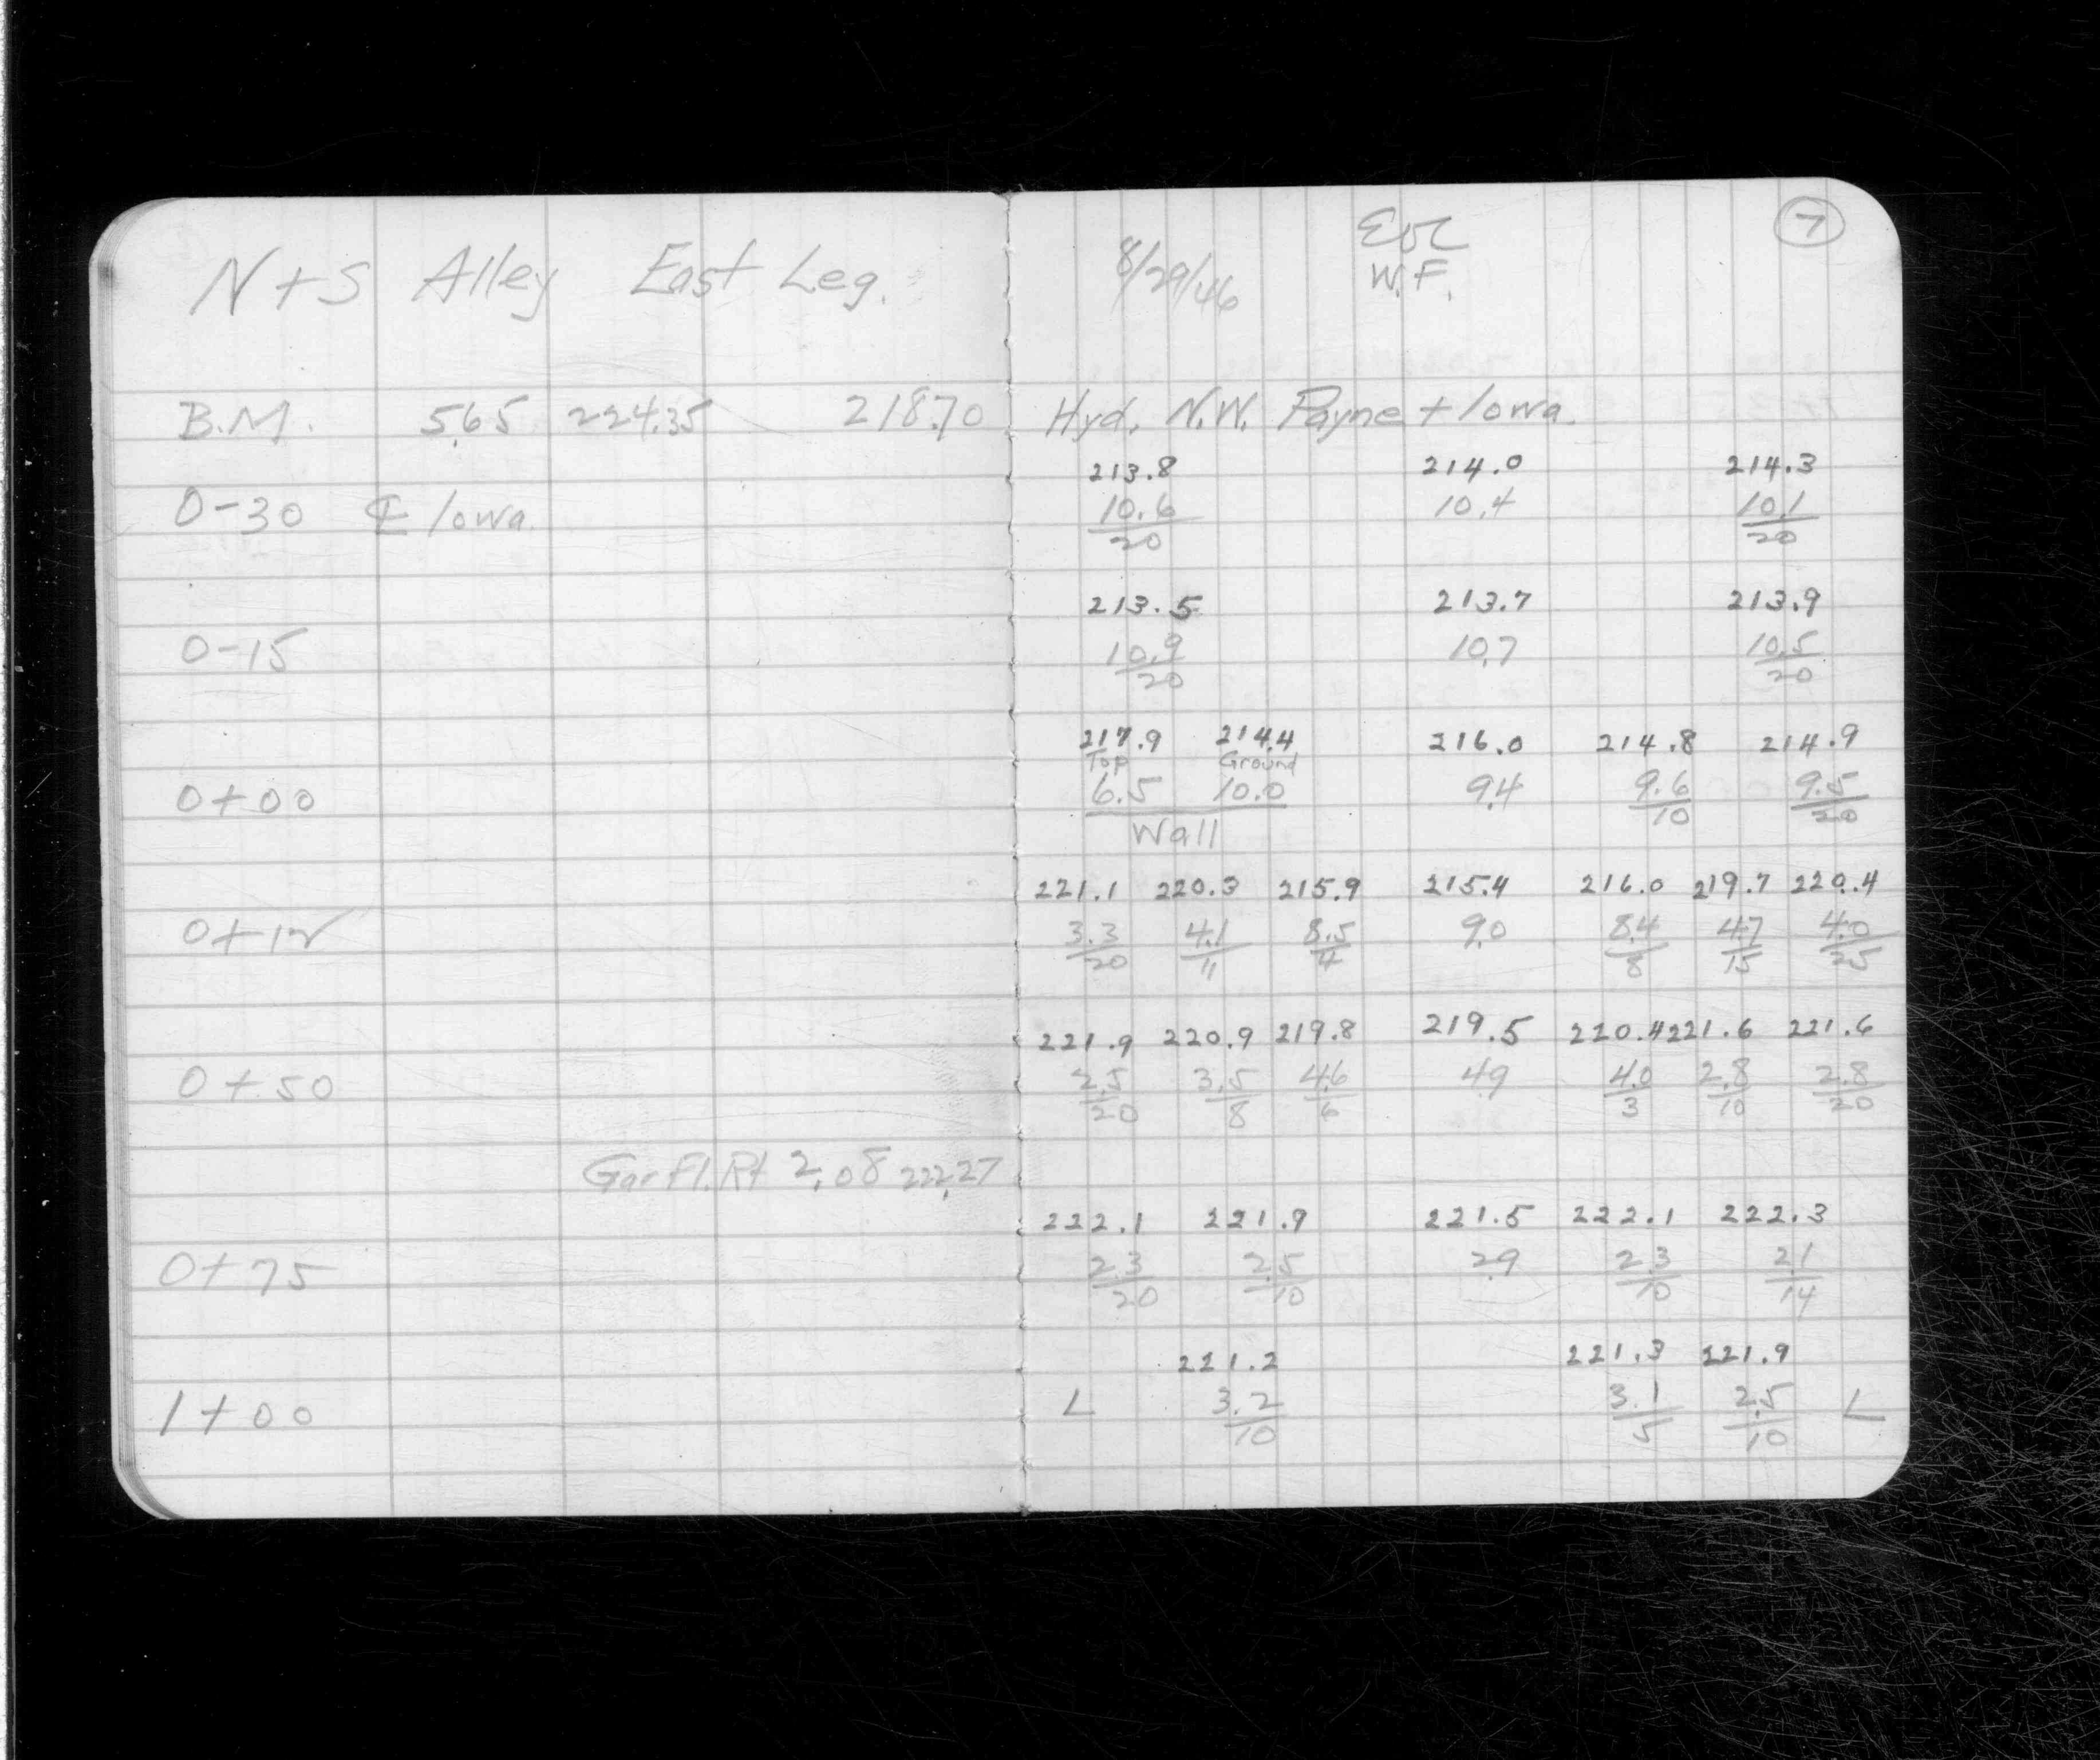 7
N+S Alley East Leg. 8/29/46
W.F.
B.M. 5.65 224.35 218.70 Hyd. N.W. Payne + Iowa.
213.8 214.0 214.3
0-30 ℄ Iowa. 10.6 10.4 10.1
20 20
213.5 213.7 213.9
0-15 10.9 10.7 10.5
20 20
217.9 214.4 216.0 214.8 214.9
Top Ground
0+00 6.5 10.0 9.4 9.6 9.5
Wall 10 20
221.1 220.3 215.9 215.4 216.0 219.7 220.4
0+12 3.3 4.1 8.5 9.0 8.4 4.7 4.0
20 11 4 8 15 25
221.9 220.9 219.8 219.5 220.4 221.6 221.6
0+50 2.5 3.5 4.6 4.9 4.0 2.8 2.8
20 8 6 3 10 20
Gar Fl. Rt 2.08 222.27
222.1 221.9 221.5 222.1 222.3
0+75 2.3 2.5 2.9 2.3 2.1
20 10 10 14
221.2 221.3 221.9
1+00 L 3.2 3.1 2.5 L
10 5 10